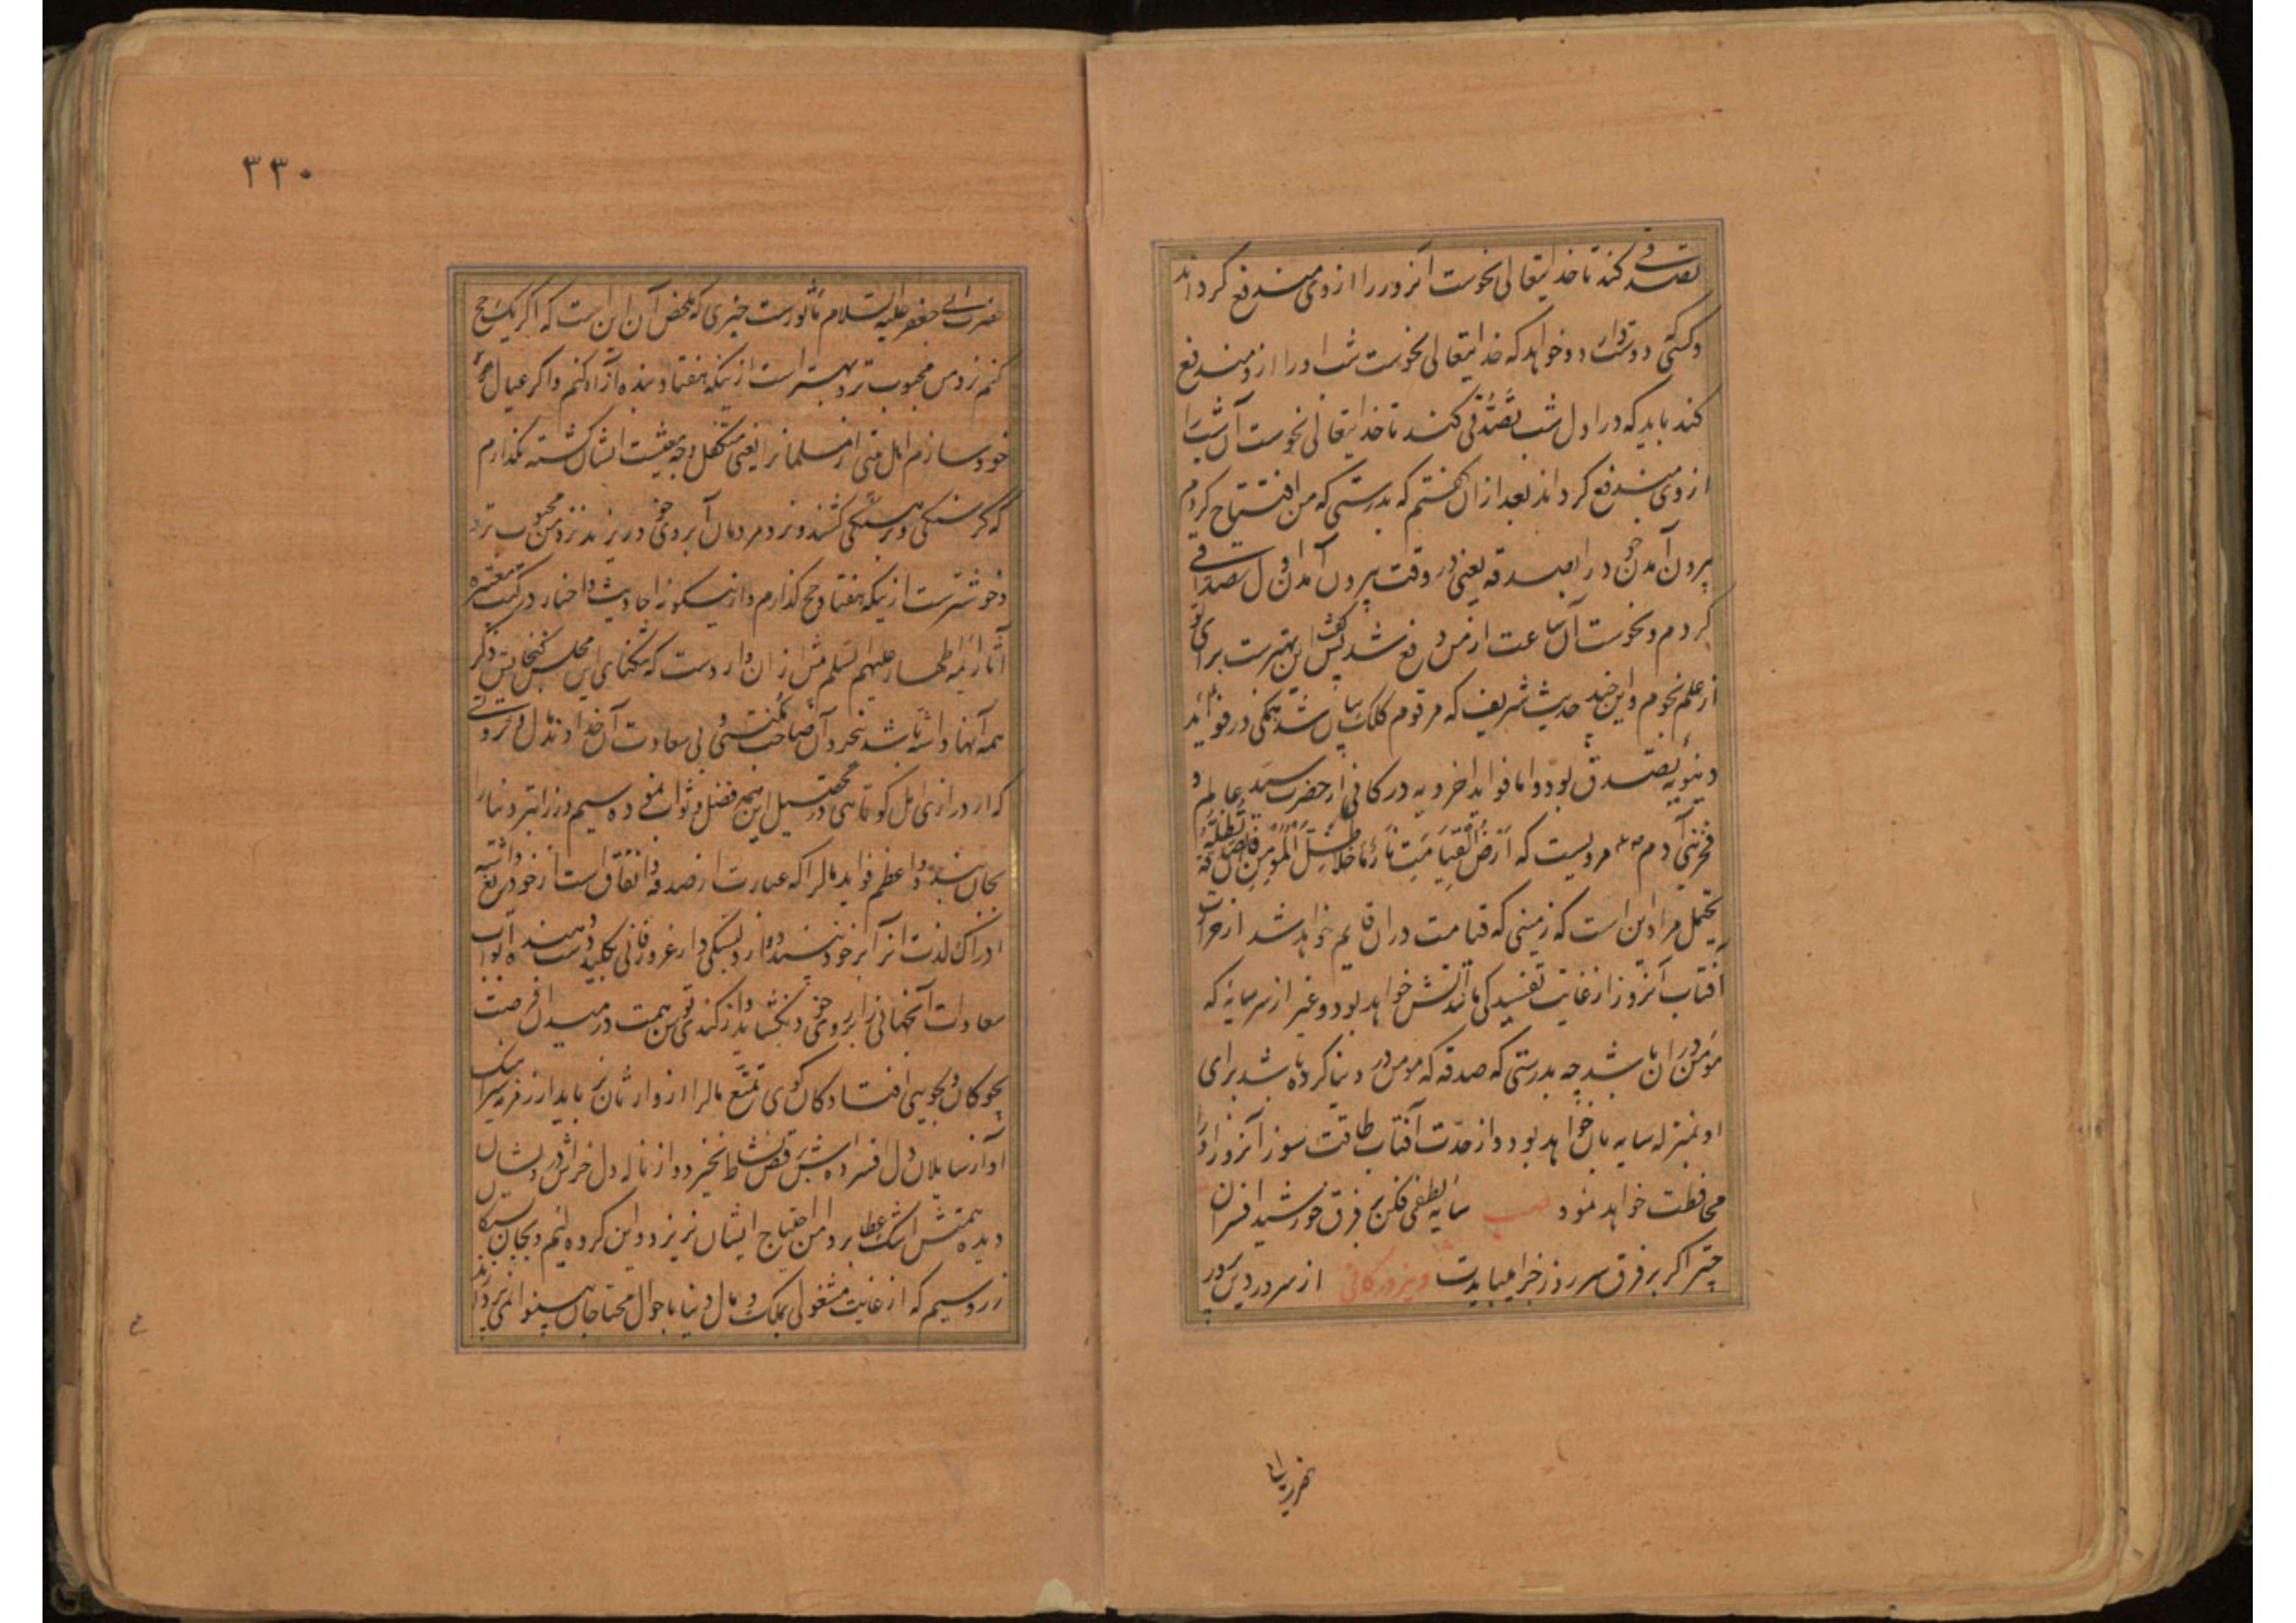 تصدقی کند تا خدایتعالی نحوست آنروز را از وی مندفع گرداند
و کسی دوست دارد و خواهد که خدایتعالی نحوست شب او را ازو مندفع
کند باید که در اول شب تصدقی کند تا خدایتعالی نحوست آن شب را
از وی مندفع گرداند بعد ازان گفتم که بدرستی که من افتتاح کردم
بیرون آمدن خود را بصدقه یعنی در وقت بیرون آمدن اول تصدقی
کردم و نحوست آن ساعت از من دفع شد پس گفت این بهترست برای تو
از علم نجوم و این چند حدیث شریف که مرقوم کلک بیان شد همگی در فواید
دنیویه تصدق بود و اما فواید اخرویه در کافی از حضرت سید عالم و
فخر بنی آدم مرویست که اَرْضُ القِیامَتِ نارٌ ما خَلا ظِلَّ المُؤمِنِ فَاِنَّ صَدَقَتَهُ تُظِلُّهُ
یحتمل مراد این است که زمینی که قیامت دران قایم خواهد شد از حرارت
آفتاب آنروز از غایت تفسیدگی مانند آتش خواهد بود و غیر از سر سایه که
مومن دران باشد چه بدرستی که صدقه که مومن در دنیا کرده باشد برای
او بمنزله سایه بان خواهد بود و از حدّت آفتاب طاقت سوز آنروز او را
محافظت خواهد نمود سایه لطفی فکن بر فرق خورشید افسران
چتر اگر بر فرق سر روز جزا میبایدت و نیز در کافی از سرور دین پرور
حضرت ابی
۳۳۰
حضرت ابی جعفر علیه السلام مأثورست خبری که ملخص آن این است که اگر یک حج
کنم نزد من محبوب تر و بهتر است از نیکه هفتاد بنده آزاد کنم و اگر عیال
خود سازم اهل بیتی از مسلمانرا یعنی متکفل وجه معیشت ایشان گشته نگذارم
که گرسنگی و برهنگی کشند و نزد مردمان آبروی خود ریزند نزد من محبوب تر
و خوشترست از نیکه هفتاد حج گذارم و ازینگونه احادیث و اخبار در کتب معتبره
آثار ائمه اطهار علیهم السلم بیش ازان واردست که تنگنای این مجلس گنجایش ذکر
همه آنها داشته باشد بخرد آن صاحب مکنتی بی سعادت آن خداوند دل و ثروتی
که از درازی امل کوتاهی در تحصیل اینهمه فضل و ثواب نموده سیم و زر ابتر و نثار
بجان بندد و اعظم فواید مال را که عبارت از صدقه و انفاق است از خود دریغ داشته
ادراک لذت آنرا بر خود نپسندد و از دلبستگی دار غرور فانی بکلید دست دهنده ابواب
سعادات آنجهانی را بروی خود نگشاید و از کندی توسن همت در میدان فرصت
بچوگان بجویی افتادگان گوی تمتع مال را از وارثان نرباید از زفر سبک
آواز سایلان دل افسرده اش برقص نشاط نخیزد و از ناله دل خراش درویشان
دیده همتش اشک عطا بر دامن احتیاج ایشان نریزد و این گروه لئیم و بیجان سبک
زر و سیم که از غایت مشغولی بملک و مال دنیا باحوال محتاجان بینوا نمی پردازند